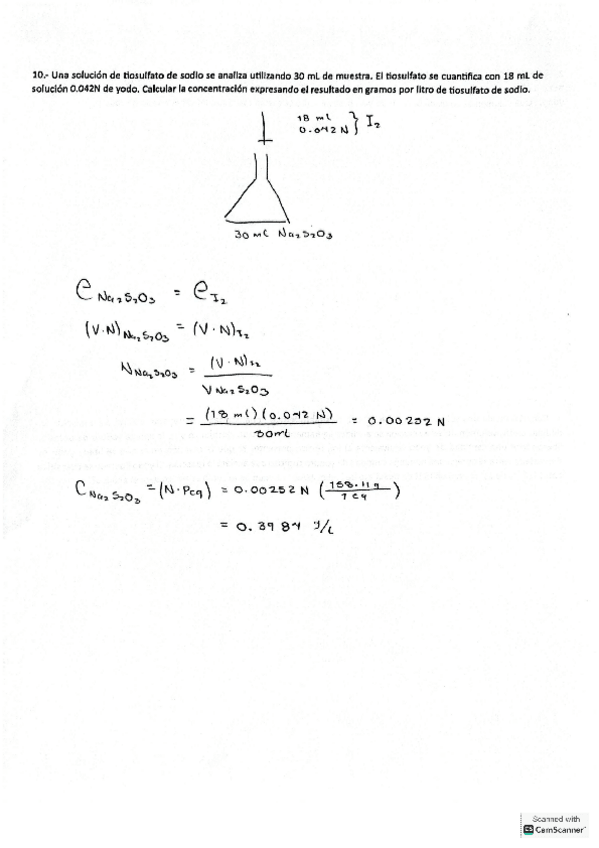 10.- Una solución de tiosulfato de sodio se analiza utilizando 30 mL de muestra. El tiosulfato se cuantifica con 18 mL de
solución 0.042N de yodo. Calcular la concentración expresando el resultado en gramos por litro de tiosulfato de sodio.
18 ml
0.042 N } I₂
30 ml Na₂S₂O₃
e Na₂S₂O₃ = e I₂
(V·N) Na₂S₂O₃ = (V·N) I₂
N Na₂S₂O₃ = (V·N) I₂
V Na₂S₂O₃
= (18 ml)(0.042 N) = 0.00252 N
30ml
C Na₂S₂O₃ = (N·Peq) = 0.00252 N (158.11g / 1 eq)
= 0.3984 g/L
Scanned with
CS CamScanner